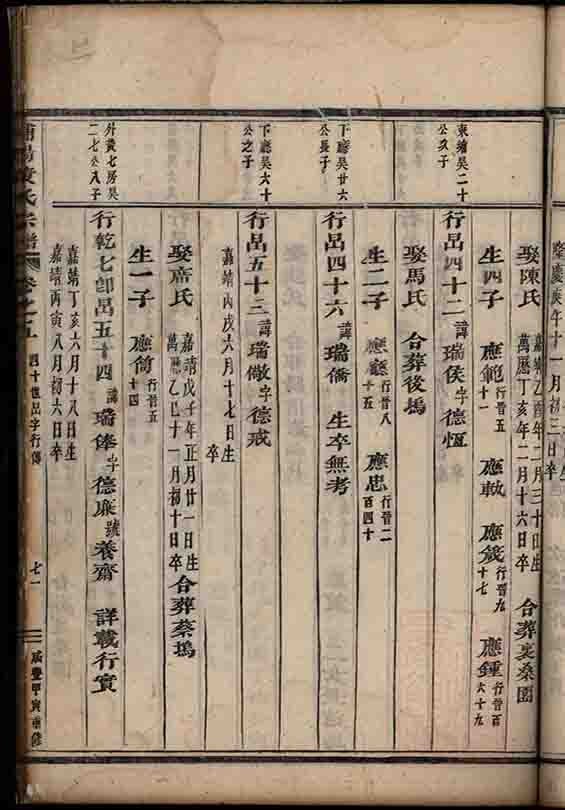 隆慶庚午十一月初三日卒
東繪吳二十
公次子
娶陳氏 嘉靖乙酉年二月三十日生
萬歷丁亥年二月十六日卒 合葬裏桑園
生四子 應範行晉五十一 應軾 應箋行晉九十七 應鍾行晉百六十九
行昂四十二諱瑞侯字德恆
娶馬氏 合葬後塢
下廳吳廿六
公長子
生二子 應廳行晉八十五 應忠行晉二百四十
行昂四十六諱瑞僑 生卒無考
下廳吳六十
公之子
行昂五十三諱瑞儆字德戒
嘉靖丙戌六月十七日生
卒
娶席氏 嘉靖戊子年正月廿一日生
萬歷乙巳十一月初十日卒 合葬蔡塢
生一子 應筒行晉五十四
外黃七房吳
二七公次子
行乾七卽昂五十四諱瑞俸字德廉號養齋 詳載行實
嘉靖丁亥六月十八日生
嘉靖丙寅八月初六日卒
氏宗譜 卷之五 四十世昂字行傳 七一 咸豐甲寅重修